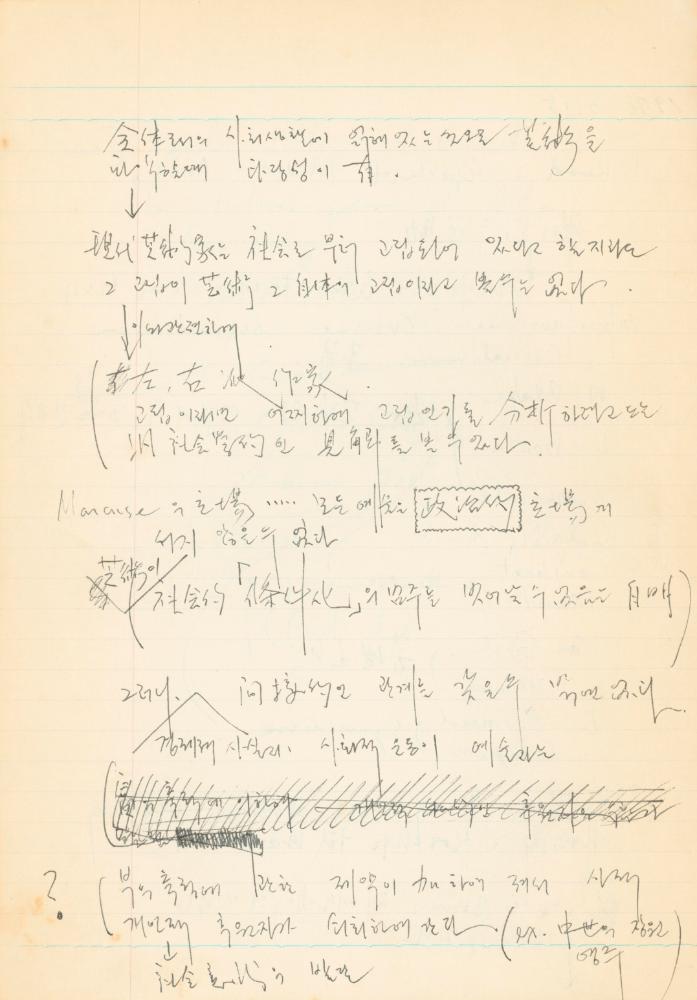 全体로서의 사회생활에 의해 있는 것으로 芸術을
파악하는데 타당성이 有.
現代 芸術家는 社会로 부터 고립되어 있다고 할지라도
그 고립이 芸術 그 自体의 고립이라고 볼 수는 없다.
이와 관련하여
左, 右 派 作家.
고립이라면 어찌하여 고립인가를 分析하려고 드는
社会学的인 見角 를 볼 수 있다.
Marcuse 의 主場 ..... 모든 예술은 政治的 主場에
서지 않을 수 없다
芸術이
社会的 「條件化」의 범주를 벗어날 수 없음은 自明
그러나. 间接的인 관계를 갖을 수 밖에 없다.
경제적 사실과. 사회적 운동이 예술과는
부의 축적에 관한 제약이 加하여 져서 사적
개인적 후원자가 쇠퇴하여 간다. (ex. 中世의 장원
영주)
社会 의 발달
?